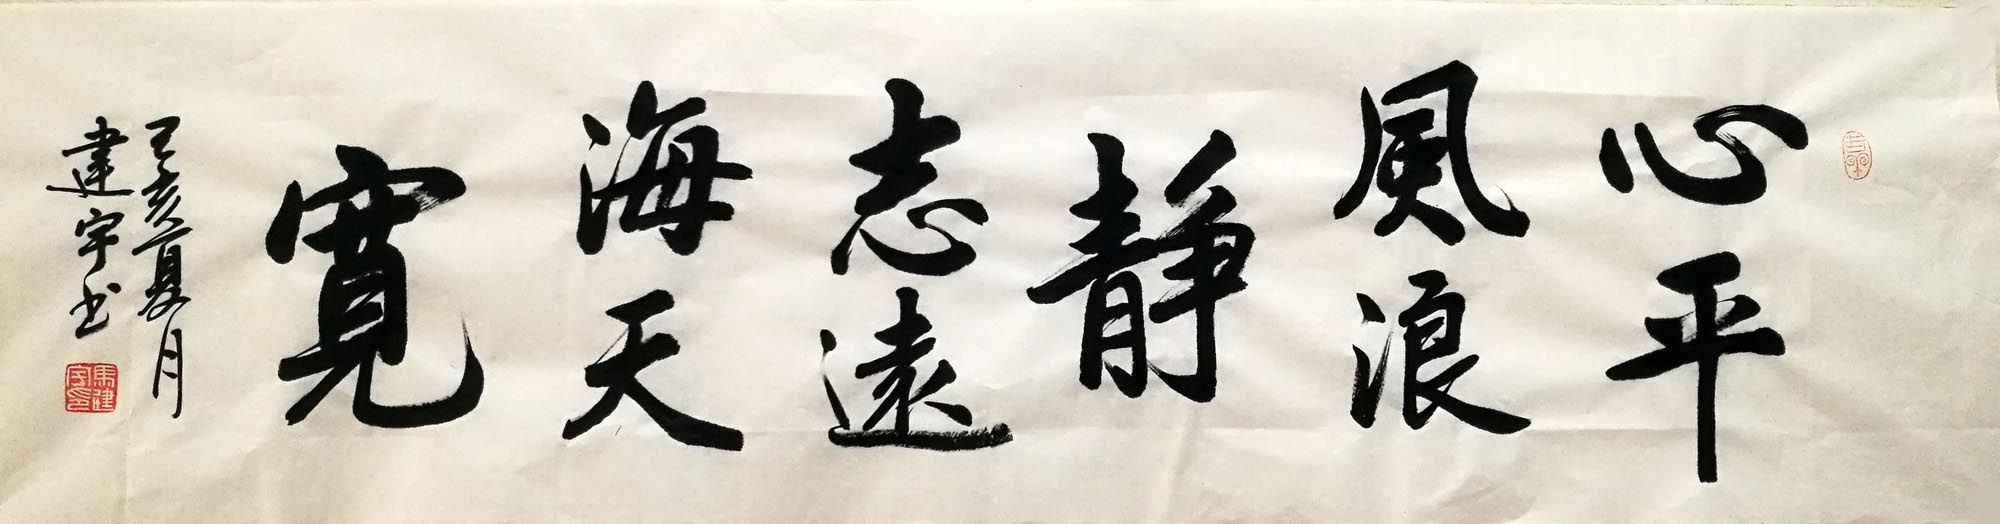 心平
風浪
靜
志遠
海天
寬
己亥夏月
建宇书
馬建宇印